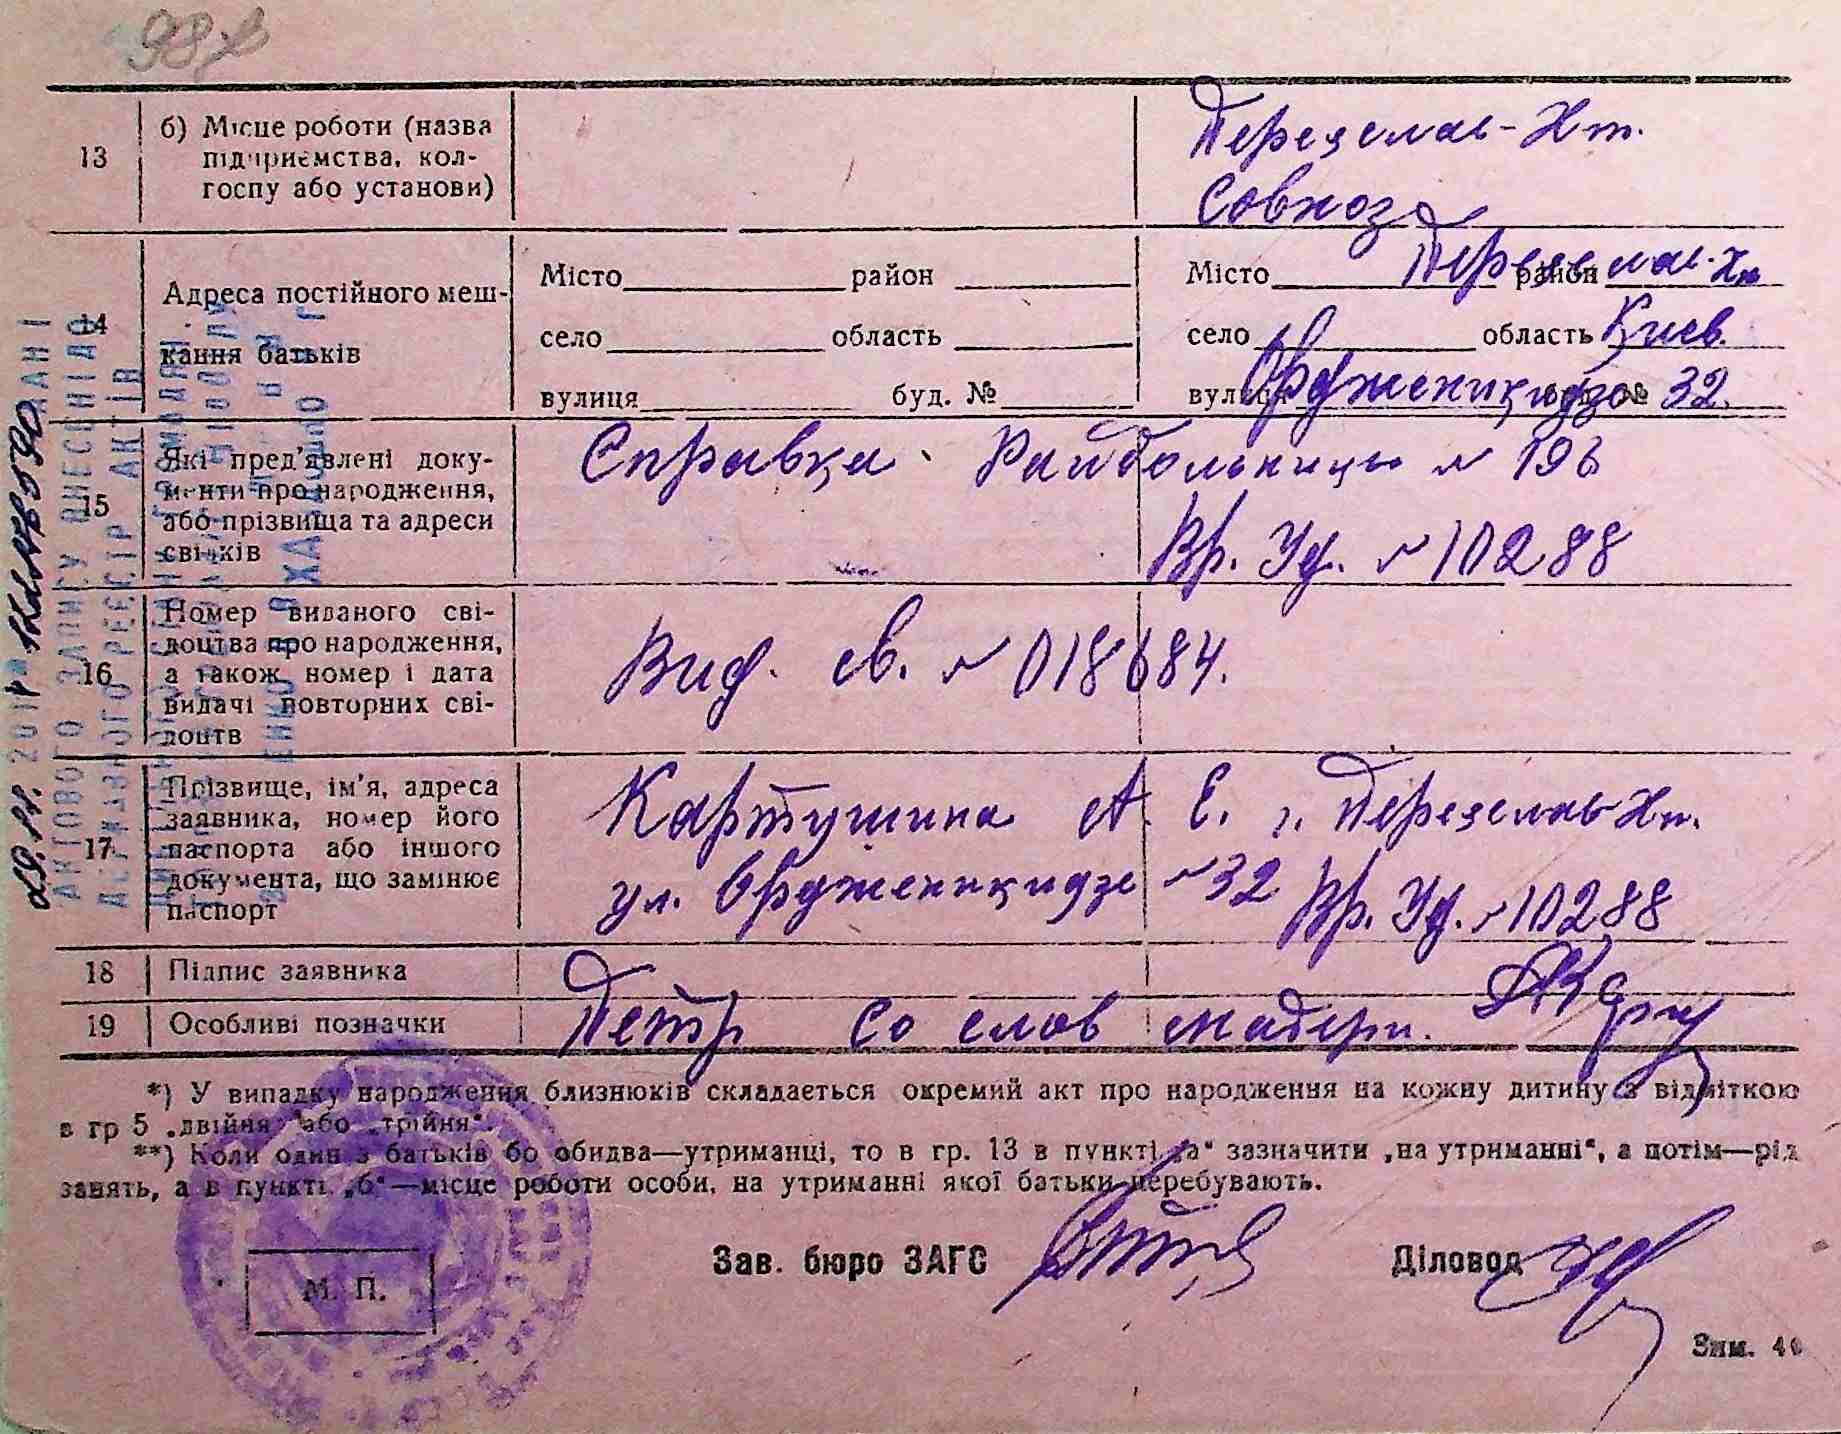 98
13
б) Місце роботи (назва
підприємства, кол-
госпу або установи)
Переяслав-Хм.
Совхоз
14
Адреса постійного меш-
кання батьків
Місто район
село область
вулиця буд. №
Місто Переяслав-Хм район
село область Киев.
вулиця Орджникидзе № 32.
15
Які пред'явлені доку-
менти про народження,
або прізвища та адреси
свідків
Справка Райбольницы № 196
Вр. Уд. № 10288
16
Номер виданого сві-
доцтва про народження,
а також номер і дата
видачі повторних сві-
доцтв
Вид. св. № 018684.
17
Прізвище, ім'я, адреса
заявника, номер його
паспорта або іншого
документа, що замінює
паспорт
Картушина А. Е. г. Переяслав-Хм.
ул. Орджникидзе № 32 Вр. Уд. № 10288
18
Підпис заявника
19
Особливі позначки
Петр со слов матери.
*) У випадку народження близнюків складається окремий акт про народження на кожну дитину з відміткою
в гр 5 „двійня" або „трійня".
**) Коли один з батьків бо обидва—утриманці, то в гр. 13 в пункті „а" зазначити „на утриманні", а потім—рід
занять, а в пункті „б"—місце роботи особи, на утриманні якої батьки перебувають.
М. П.
Зав. бюро ЗАГС
Діловод
АКТОВОГО ЗАПИСУ ВНЕСЕНІ ДО
ДЕРЖАВНОГО РЕЄСТР АКТІВ